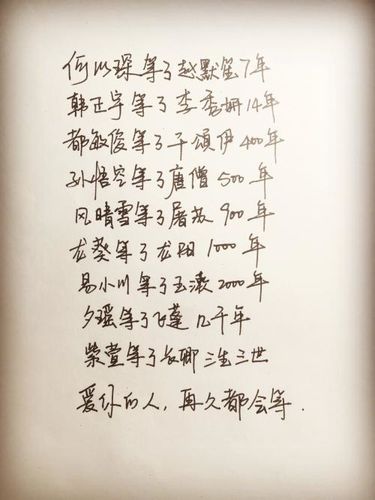 何以琛等了赵默笙7年
韩正宇等了李秀妍14年
都敏俊等了千颂伊400年
孙悟空等了唐僧500年
风晴雪等了屠苏900年
龙葵等了龙阳1000年
易小川等了玉漱2000年
夕瑶等了飞蓬几千年
紫萱等了长卿三生三世
爱你的人，再久都会等.